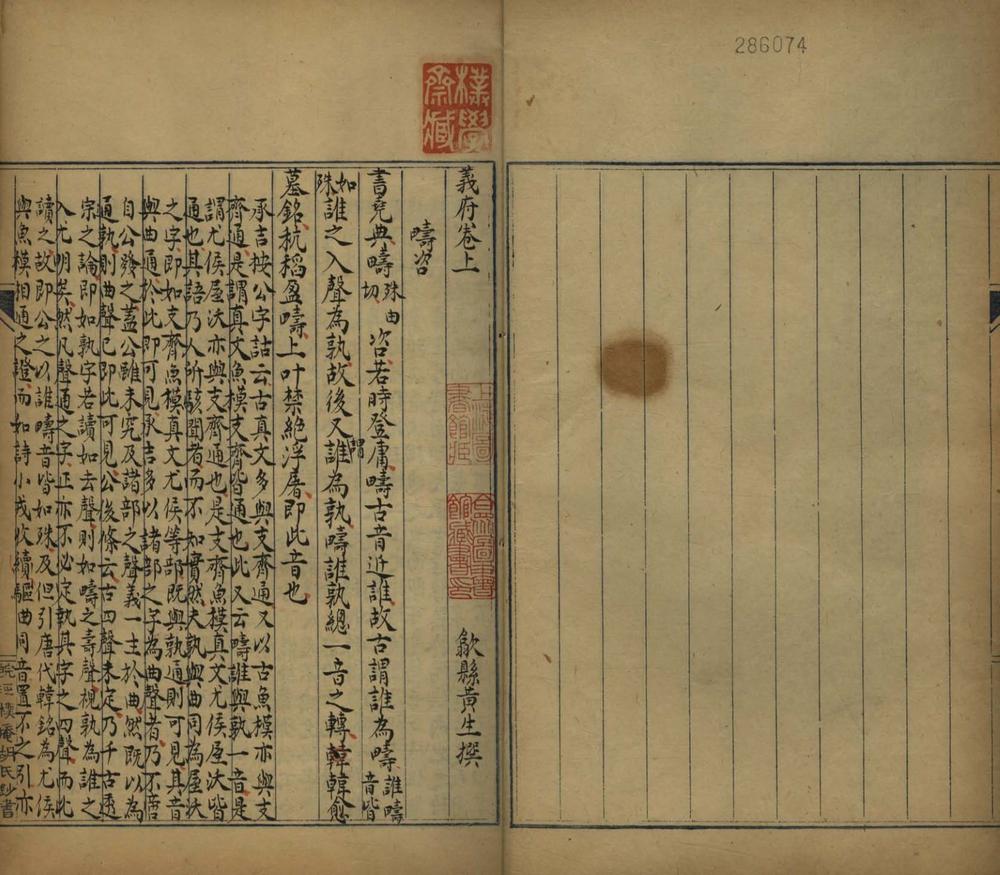 286074
樸學齋藏
義府卷上
歙縣黃生撰
疇咨
書堯典疇殊由切咨若時登庸疇古音近誰故古謂誰為疇誰疇音皆
如殊誰之入聲為孰故後又謂誰為孰疇誰孰總一音之轉韓韓愈
墓銘秔稻盈疇上叶禁絕浮屠即此音也
承吉按公字詁云古真文多與支齊通又以古魚模亦與支
齊通是謂真文魚模支齊皆通也此又云疇誰與孰一音是
謂尤侯屋沃亦與支齊通也是支齊魚模真文尤侯屋沃皆
通也其語乃人所駭聞者而不知實然夫孰與曲同為屋沃
之字即如支齊魚模真文尤侯等部既與孰通則可見其音
與曲通於此即可見承吉多以諸部之字為曲聲者乃不啻
自公發之蓋公雖未究及諸部之聲義一主於曲然既以為
通孰則曲聲已即此可見公後條云古四聲未定乃千古透
宗之論即如孰字若讀如去聲則如疇之壽聲視孰為誰之
入尤明矣然凡聲通之字正亦不必定執其字之四聲而此
讀之故即公之以誰疇音皆如殊及但引唐代韓銘為尤侯
與魚模相通之證而如詩小戎收續驅曲同音置不之引亦